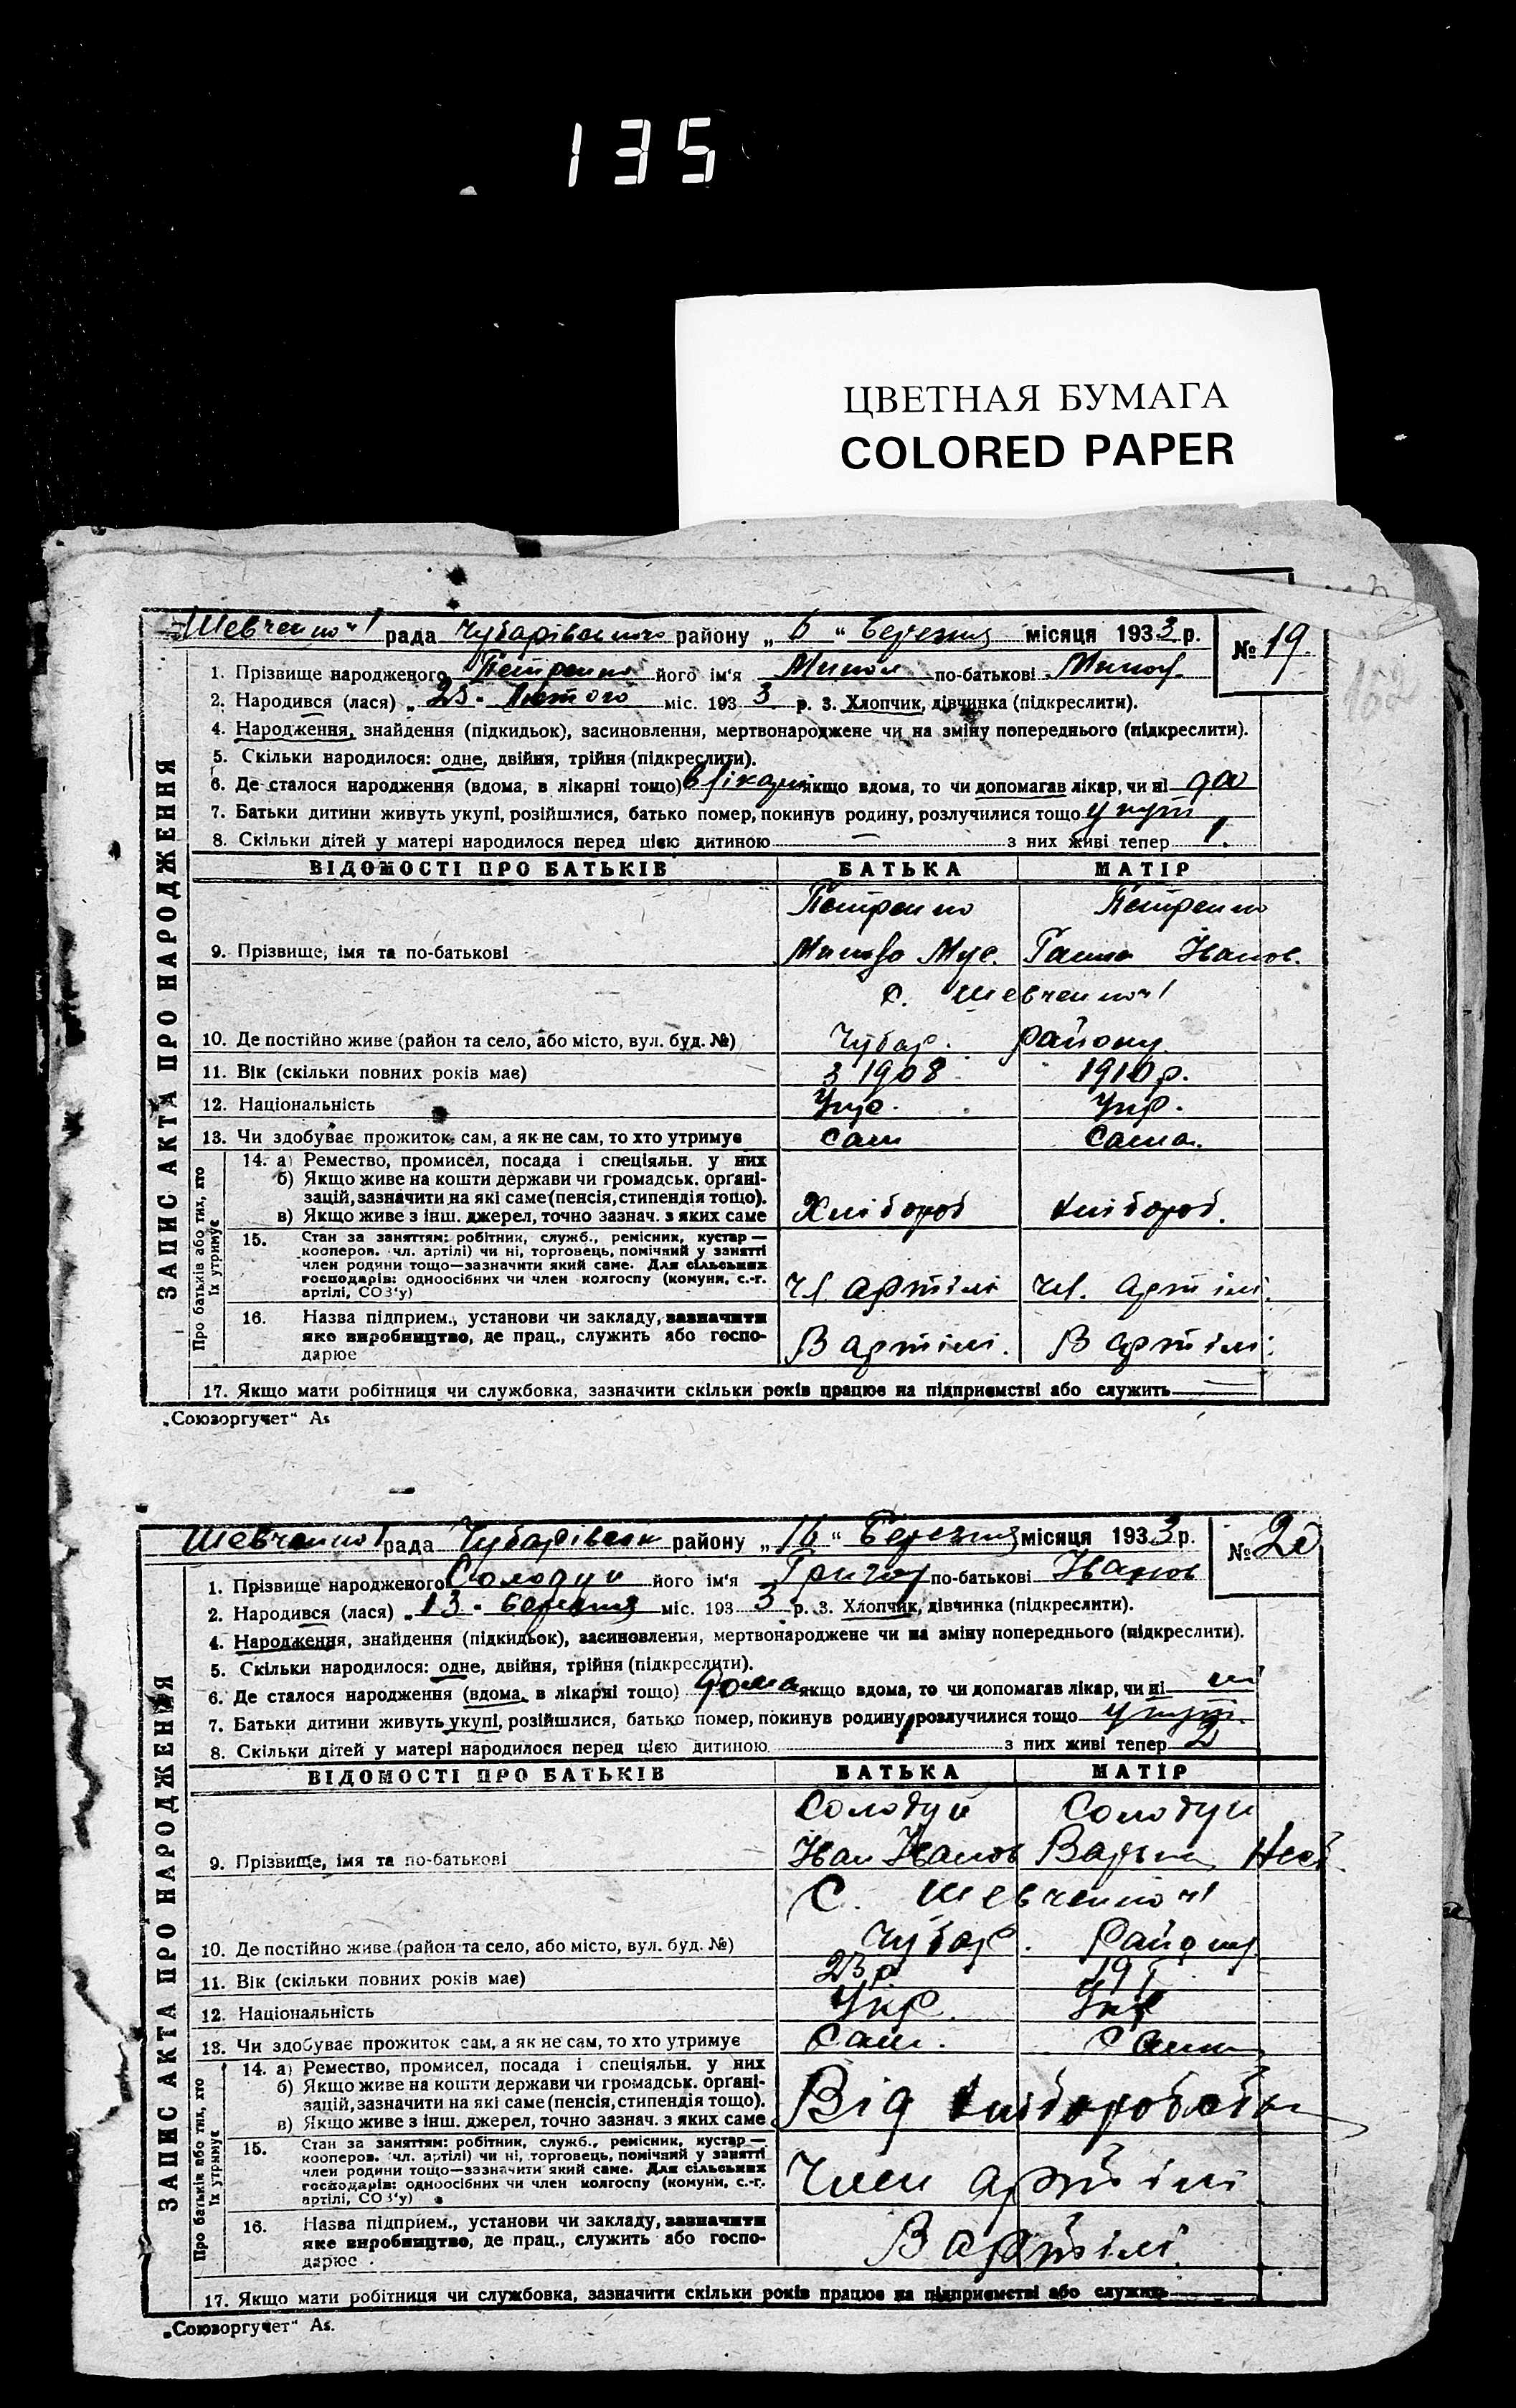 135
ЦВЕТНАЯ БУМАГА
COLORED PAPER
рада Чубарівського району „6“ Березня місяця 1933 р. № 19.
162
1. Прізвище народженого Петренко його ім'я Микол по-батькові Микол.
2. Народився (лася) „23“ Лютого міс. 1933 р. 3. Хлопчик, дівчинка (підкреслити).
4. Народження, знайдення (підкидьок), засиновлення, мертвонароджене чи на зміну попереднього (підкреслити).
5. Скільки народилося: одне, двійня, трійня (підкреслити).
6. Де сталося народження (вдома, в лікарні тощо) в лікарні якщо вдома, то чи допомагав лікар, чи ні да
7. Батьки дитини живуть укупі, розійшлися, батько помер, покинув родину, розлучилися тощо укупі
8. Скільки дітей у матері народилося перед цією дитиною — з них живі тепер 1.
ЗАПИС АКТА ПРО НАРОДЖЕННЯ
ВІДОМОСТІ ПРО БАТЬКІВ БАТЬКА МАТІР
Петренко Петренко
9. Прізвище, імя та по-батькові Мус. Ганна Іванов.
с.
10. Де постійно живе (район та село, або місто, вул. буд. №) Чубар. району
11. Вік (скільки повних років має) з 1908 1910 р.
12. Національність Укр. Укр.
13. Чи здобуває прожиток сам, а як не сам, то хто утримує сам сама.
Про батьків або тих, хто їх утримує
14. а) Ремество, промисел, посада і спеціяльн. у них
б) Якщо живе на кошти держави чи громадськ. органі-
зацій, зазначити на які саме (пенсія, стипендія тощо).
в) Якщо живе з інш. джерел, точно зазнач. з яких саме Хлібороб хлібороб.
15. Стан за заняттям: робітник, служб., ремісник, кустар —
кооперов. чл. артілі) чи ні, торговець, помічний у занятті
член родини тощо—зазначити який саме. Для сільських
господарів: одноосібних чи член колгоспу (комуни, с.-г.
артілі, СОЗ'у) чл. артілі чл. артілі.
16. Назва підприєм., установи чи закладу, зазначити
яке виробництво, де прац., служить або госпо-
дарює В артілі. В артілі.
17. Якщо мати робітниця чи службовка, зазначити скільки років працює на підприємстві або служить —
„Союзоргучет“ Аs
рада Чубарівськ району „16“ Березня місяця 1933 р. № 20
1. Прізвище народженого Солодуй його ім'я Григор по-батькові Іванов
2. Народився (лася) „13“ березня міс. 1933 р. 3. Хлопчик, дівчинка (підкреслити).
4. Народження, знайдення (підкидьок), засиновлення, мертвонароджене чи на зміну попереднього (підкреслити).
5. Скільки народилося: одне, двійня, трійня (підкреслити).
6. Де сталося народження (вдома, в лікарні тощо) дома якщо вдома, то чи допомагав лікар, чи ні ні
7. Батьки дитини живуть укупі, розійшлися, батько помер, покинув родину, розлучилися тощо укупі.
8. Скільки дітей у матері народилося перед цією дитиною 1 з них живі тепер 2
ЗАПИС АКТА ПРО НАРОДЖЕННЯ
ВІДОМОСТІ ПРО БАТЬКІВ БАТЬКА МАТІР
Солодуй Солодуй
9. Прізвище, імя та по-батькові Іван Іванов
С.
10. Де постійно живе (район та село, або місто, вул. буд. №) Чубар. Району
11. Вік (скільки повних років має) 23 р. 19 р
12. Національність Укр. Укр
13. Чи здобуває прожиток сам, а як не сам, то хто утримує Сам. Сама
Про батьків або тих, хто їх утримує
14. а) Ремество, промисел, посада і спеціяльн. у них
б) Якщо живе на кошти держави чи громадськ. органі-
зацій, зазначити на які саме (пенсія, стипендія тощо).
в) Якщо живе з інш. джерел, точно зазнач. з яких саме Від
15. Стан за заняттям: робітник, служб., ремісник, кустар —
кооперов. чл. артілі) чи ні, торговець, помічний у занятті
член родини тощо—зазначити який саме. Для сільських
господарів: одноосібних чи член колгоспу (комуни, с.-г.
артілі, СОЗ'у) Член артілі
16. Назва підприєм., установи чи закладу, зазначити
яке виробництво, де прац., служить або госпо-
дарює В артілі.
17. Якщо мати робітниця чи службовка, зазначити скільки років працює на підприємстві або служить
„Союзоргучет“ Аs.